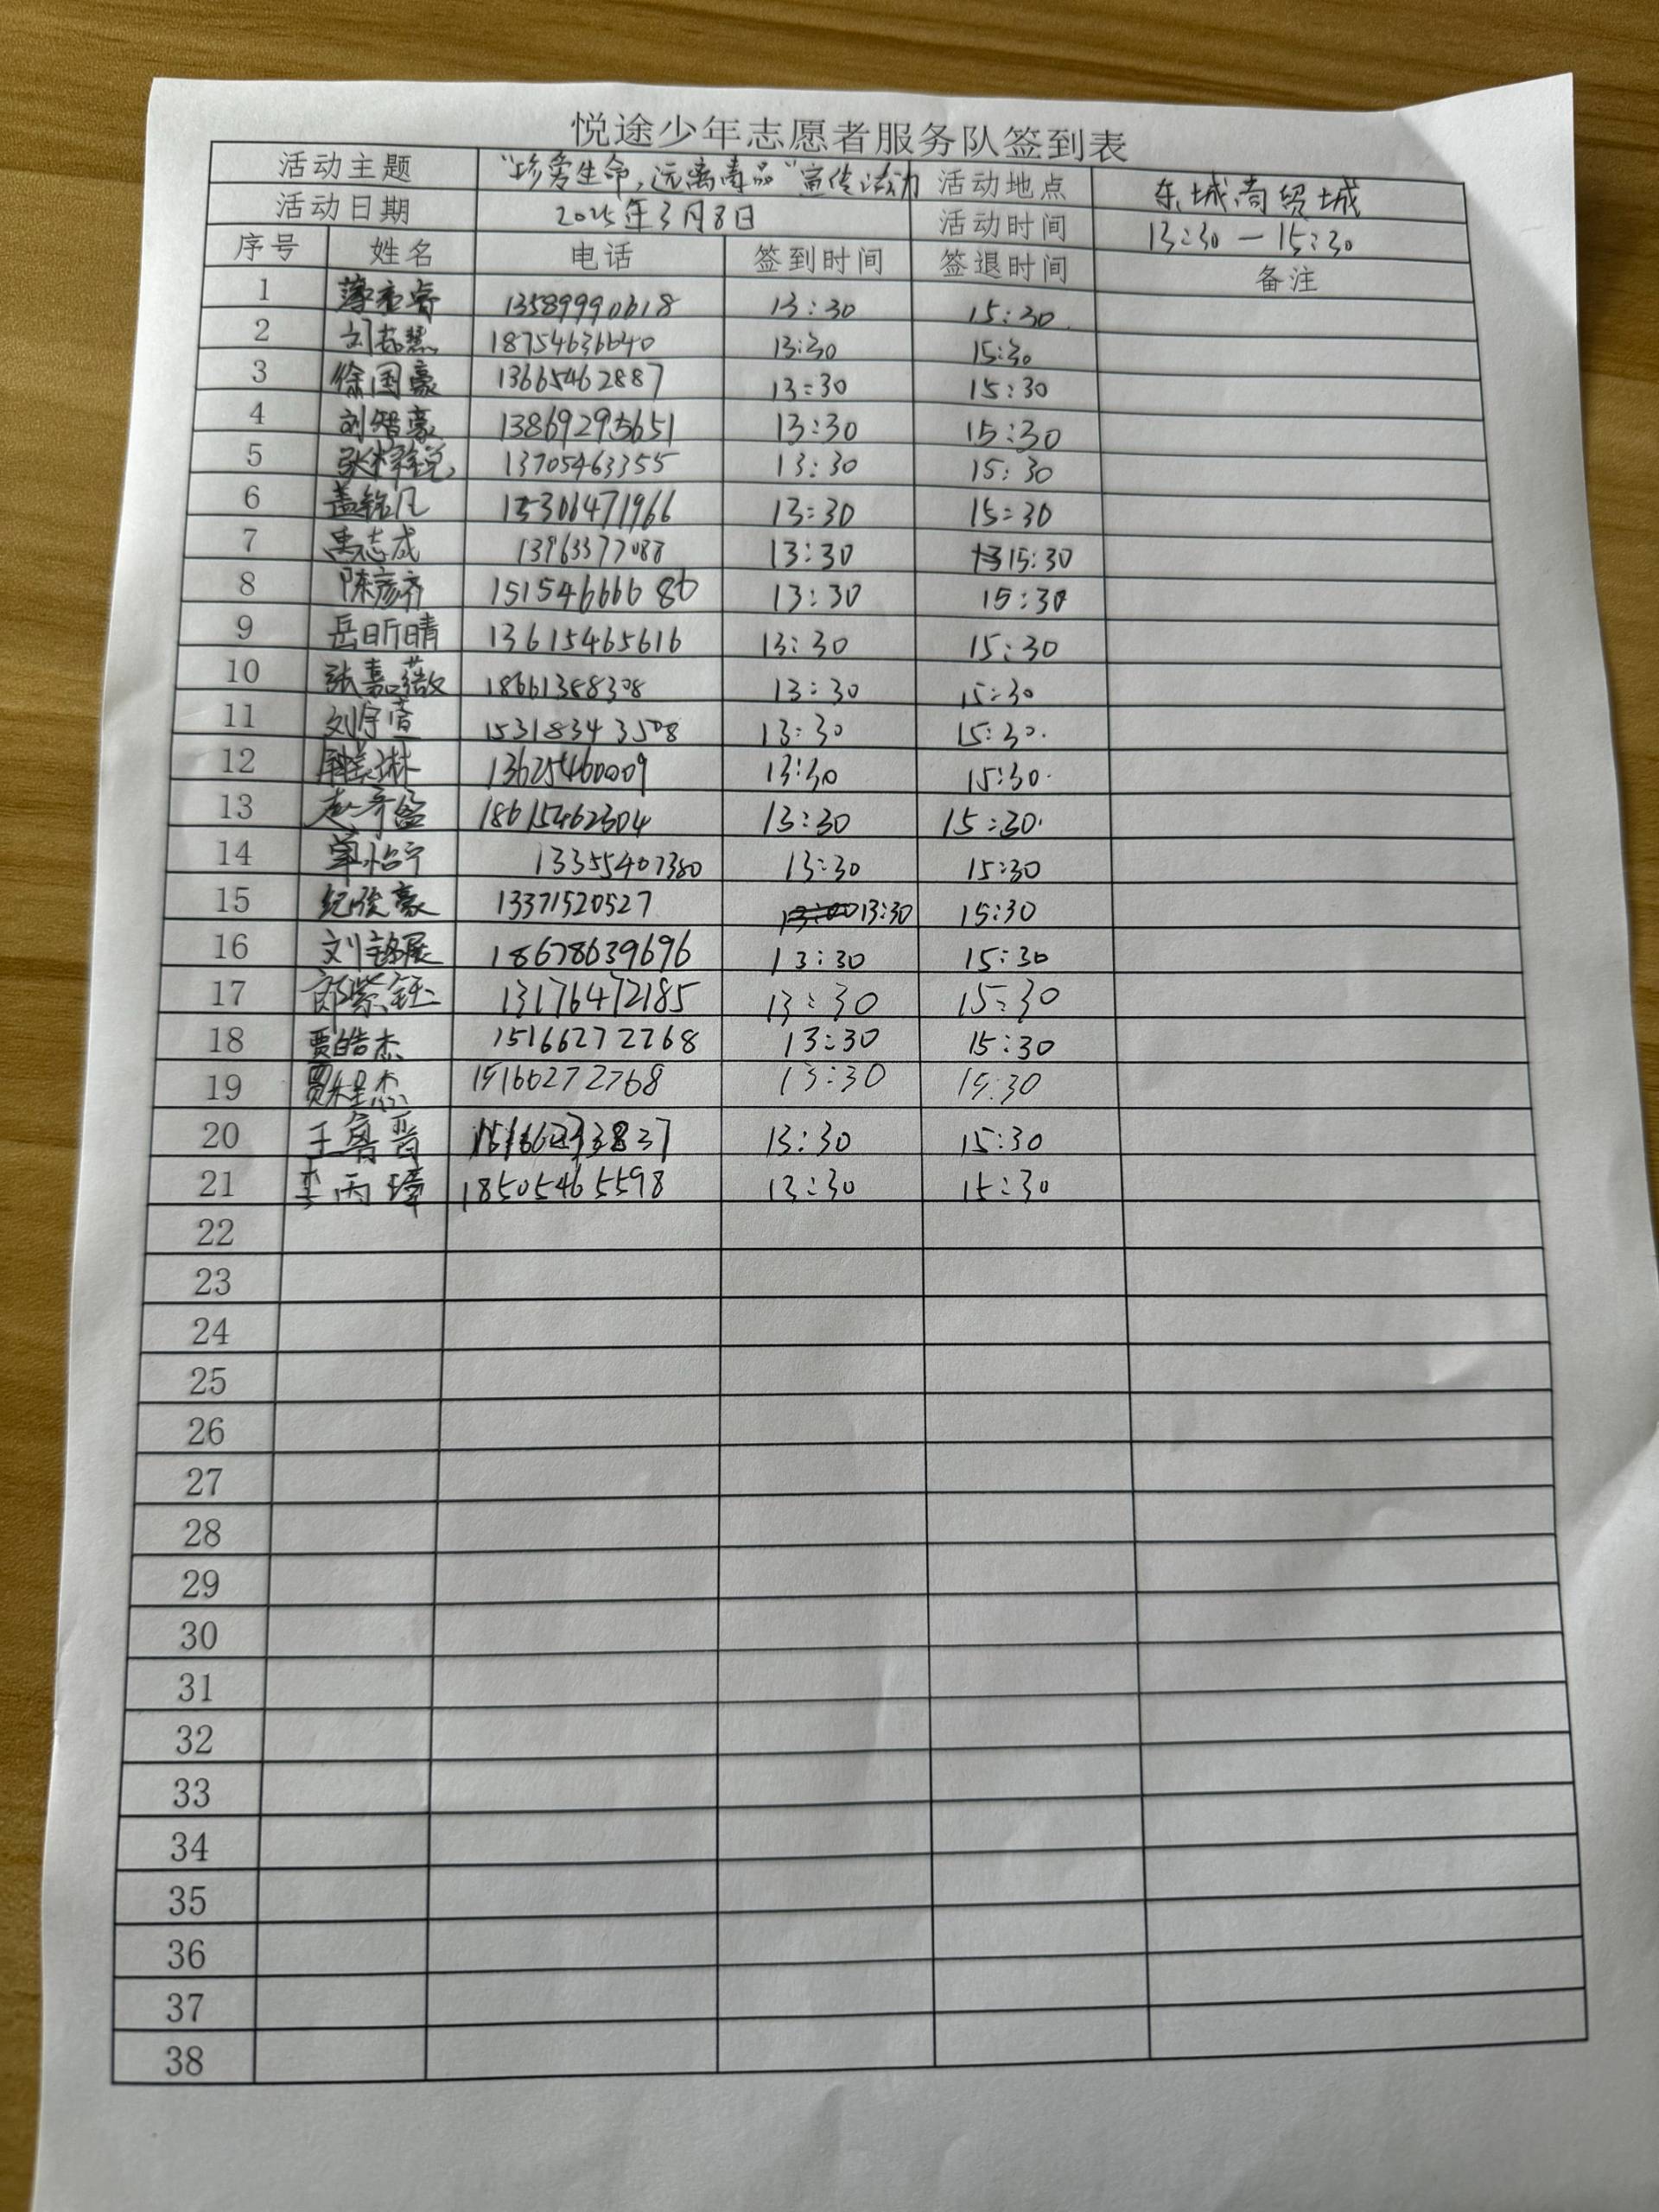 悦途少年志愿者服务队签到表
活动主题 "珍爱生命,远离毒品"宣传活动 活动地点 东城商贸城
活动日期 2025年3月8日 活动时间 13:30-15:30
序号 姓名 电话 签到时间 签退时间 备注
1 13589990618 13:30 15:30
2 18754636640 13:30 15:30
3 徐国豪 13665462887 13:30 15:30
4 刘智豪 13869295651 13:30 15:30
5 13705463355 13:30 15:30
6 盖铭凡 15306471966 13:30 15:30
7 禹志成 13963377088 13:30 15:30
8 陈彦齐 15154666686 13:30 15:30
9 岳昕晴 13615465616 13:30 15:30
10 张嘉薇 18661388308 13:30 15:30
11 刘宇萱 15318343508 13:30 15:30
12 13625460009 13:30 15:30
13 18615462304 13:30 15:30
14 单怡宁 13355407380 13:30 15:30
15 纪俊豪 13371520527 13:30 15:30
16 刘铭展 18678639696 13:30 15:30
17 郎紫钰 13176472185 13:30 15:30
18 贾皓杰 15166272268 13:30 15:30
19 贾程杰 15166272768 13:30 15:30
20 王鲁晋 13:30 15:30
21 李丙璋 18505465598 13:30 15:30
22
23
24
25
26
27
28
29
30
31
32
33
34
35
36
37
38